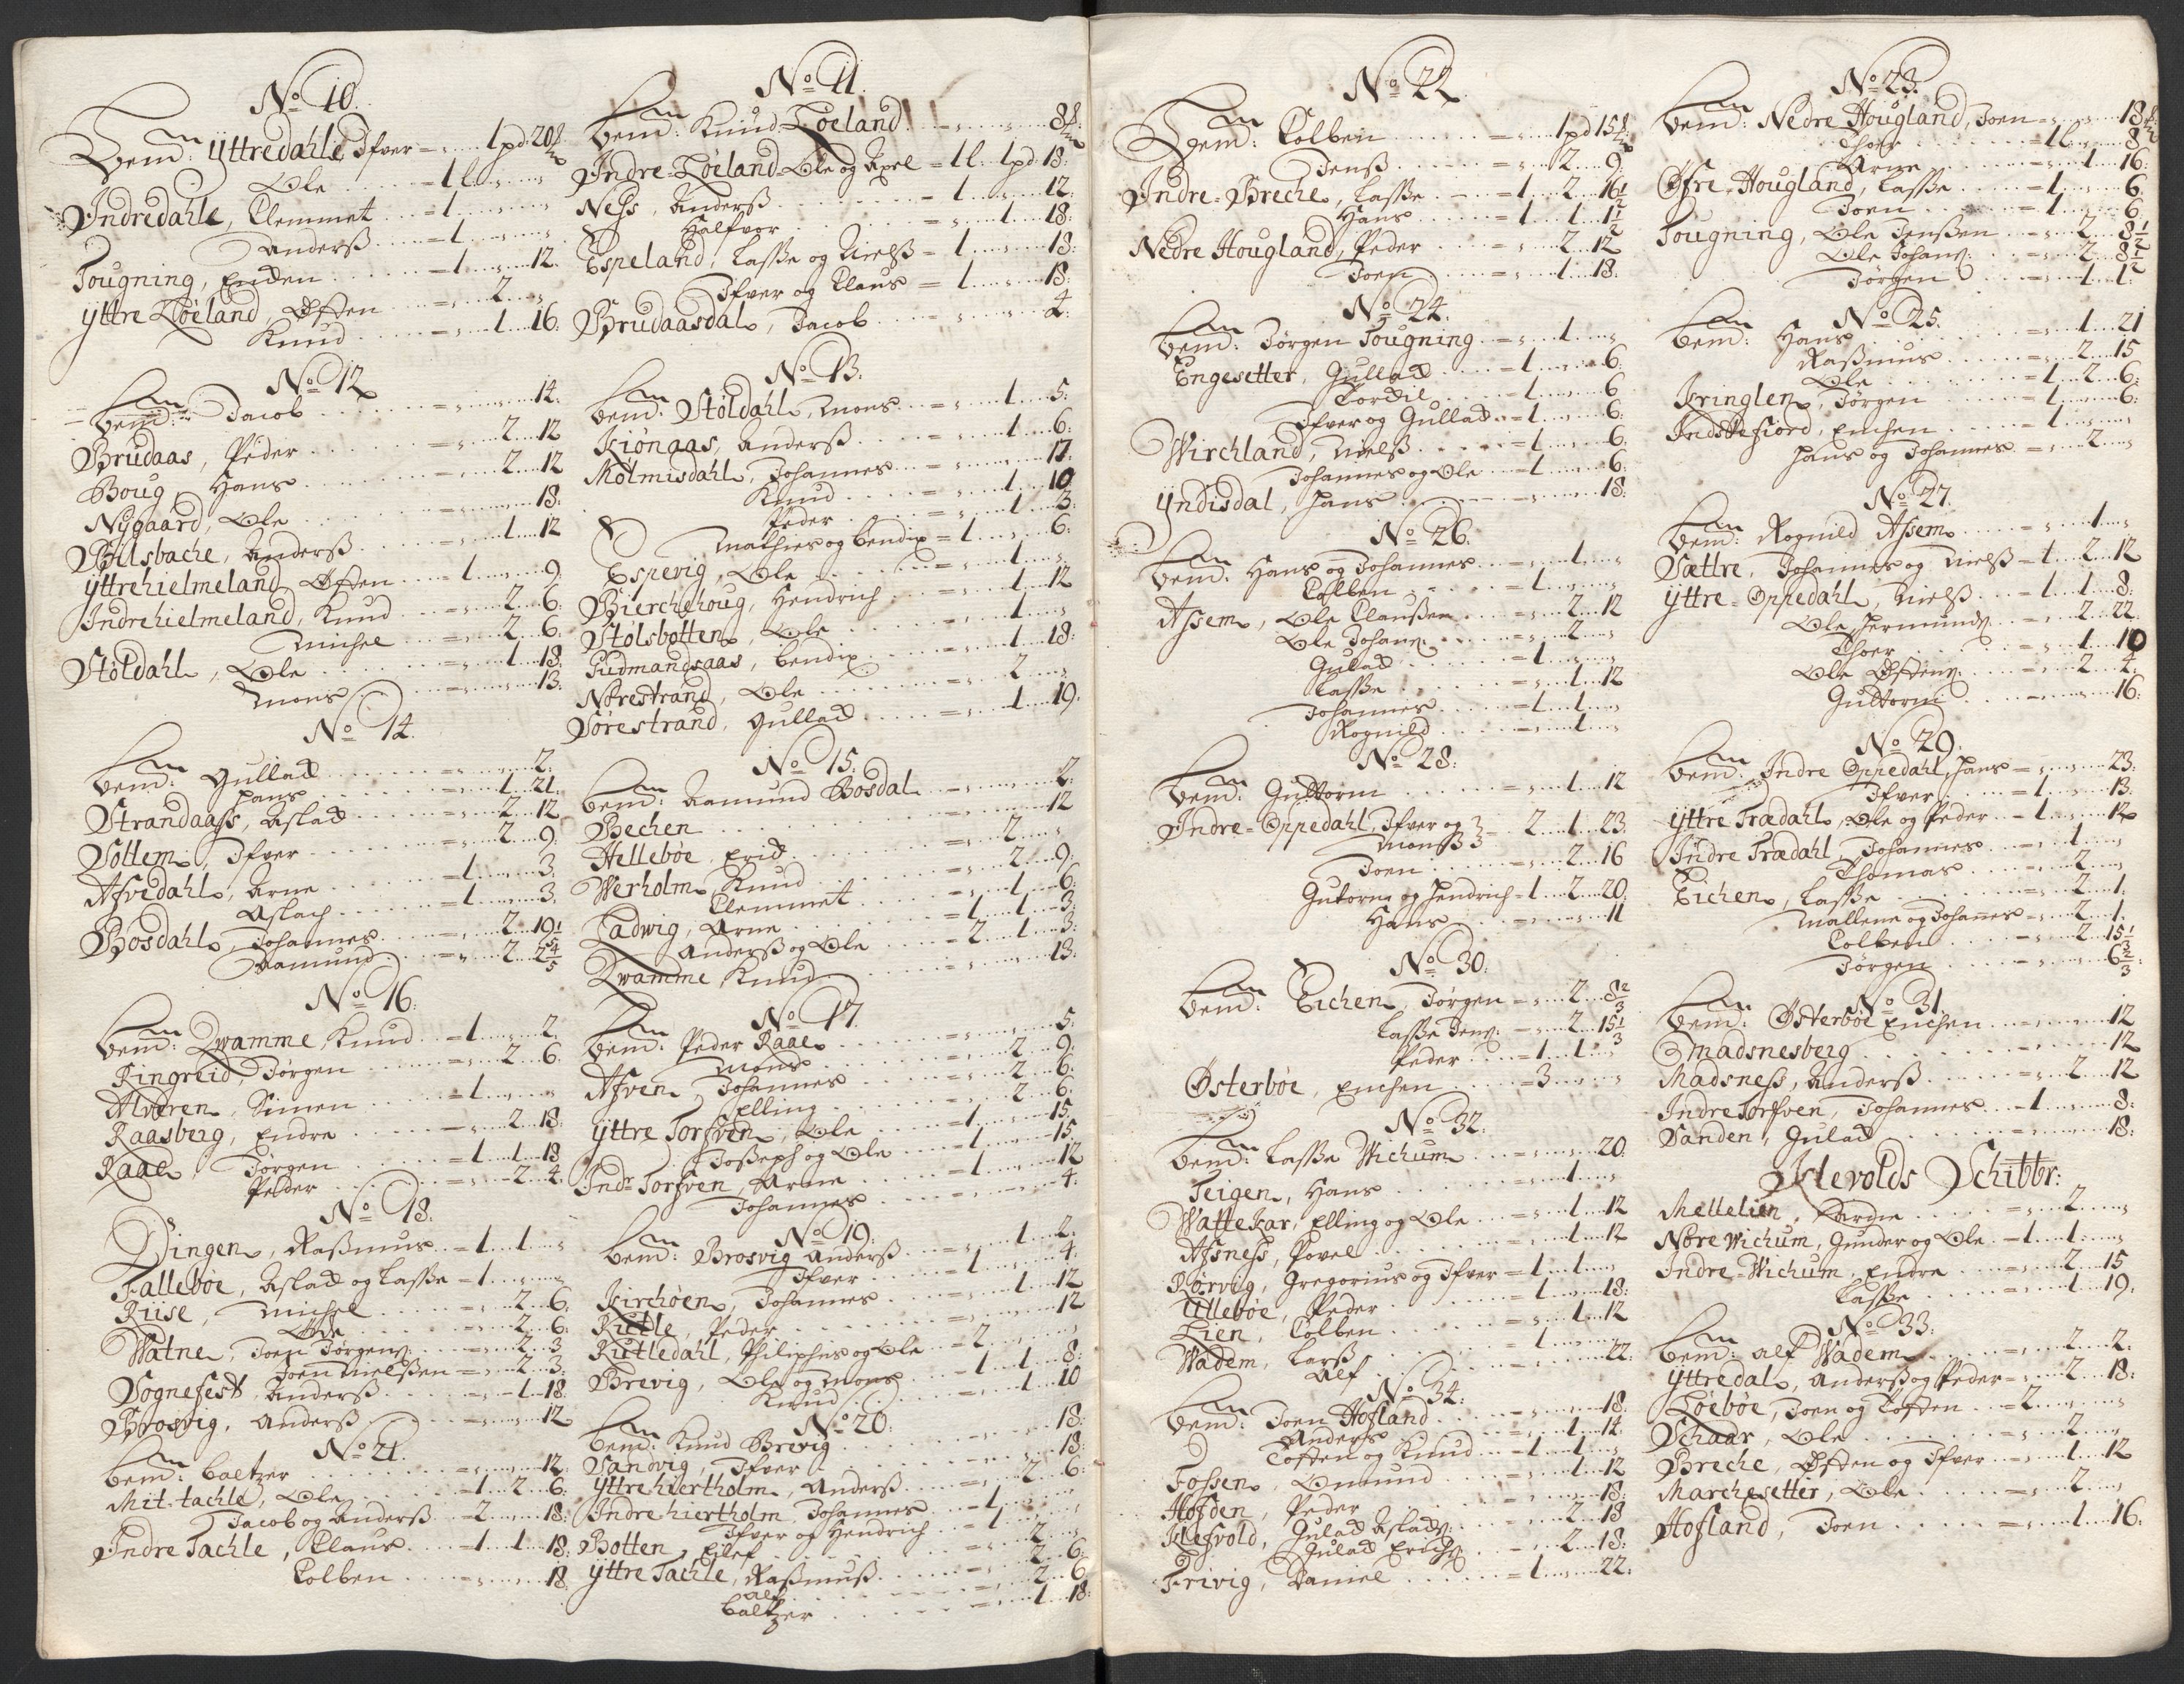 No 10.
bemt: Yttredahle Ifver = „ 1 pd 20 ℔
Ole = 1 l „ „
Indredahle, Clemmet = 1 „ „
Anderß = 1 „ „
Tougning, Enden = 1 „ 12.
Yttre Löeland, Østen = „ 2 „
Knud = „ 1 16.
No 12
bemt: Jacob = „ „ 14.
Brudaas, Peder = „ 2 12
Boug, Hans = „ 2 12
Nygaard, Ole = „ „ 18:
Bilsbache, Anderß = „ 1 12
Yttrehielmeland Østen = 1 „ 9
Indrehielmeland, Knud = „ 2 6.
Michel = „ 2 6.
Stöldahl, Ole = „ 1 18.
Mons = „ „ 13.
No 14.
bemt: Gullad = „ „ 2.
Hans = „ 1 21.
Strandaass, Aslad = „ 2 12
Sollem, Ifver = „ 2 9.
Afvedahl, Arne = 1 „ 3.
Aslach = 1 „ 3.
Bosdahl, Johannes = „ 2 19 1/5
Aamund = „ 2 2 4/5
No 16.
bemt: Qvamme Knud = 1 „ 2.
Ringreid, Jörgen = „ 2 6.
Alveren, Simen = 1 „ „
Raasberg, Endre = „ 2 18:
Raae, Jörgen = 1 1 18
Peder = „ 2 4.
No 18.
Dingen, Raßmus = 1 1 „
Falleböe, Aslad og Lasse = 1 „ „
Riise, Michel = „ 2 6.
Otte = „ 2 6:
Watne, Joen Jörgens: = „ 2 3
Joen Nielßen = „ 2 3.
Sognefest, Anderß = „ 1 18.
Brosvig, Anderß = „ „ 12
No 21.
bemt: Baltzer = „ „ 12.
Mit-tachle, Ole = 1 2 6:
Jacob og Anderß = 2 „ 18:
Indre Tachle, Claus = 1 1 18:
Colben = „ „ 18
No 11.
bemt: Knud Löeland = „ „ 8 ℔
Indre-Löeland Ole og Axel = 1 l: 1 pd 18:
Ness, Anderß = 1 „ 12:
Halfvor = „ 1 18:
Espeland, Lasse og Nielß = 1 „ 18:
Ifver og Claus = 1 „ 18:
Brudaasdal, Jacob = „ „ 4:
No 13.
bemt: Stöldahl, Mons = „ 1 5:
Kiönaas, Anderß = „ 1 6:
Molmisdahl, Johannes = „ „ 17:
Knud = „ 1 10
Peder = „ 1 3.
Mathies og Bendix = 1 „ 6:
Espevig, Ole = „ 1 „
Bierchehoug, Hendrich = „ 1 12
Stölsbotten, Ole = „ 1 „
Gudmandsaas, Bendix = „ 1 18:
Norestrand, Ole = „ 2 „
Sörestrand, Gullad = „ 1 19.
No 15.
bemt: Aamund Bosdal = „ „ 2.
Bechen = „ „ 12
Helleböe, Erid = „ 2 „
Werholm, Knud = „ 2 9.
Clemmet = „ 1 6.
Ladvig, Arne = 1 1 3.
Anderß og Ole = 2 1 3.
Qvamme, Knud = „ „ 13.
No 17.
bemt: Peder Raae = „ „ 5.
Mons = „ 2 9.
Afven, Johannes = „ 2 6.
Elling = „ 2 6.
Yttre Torfven, Ole = 1 „ 15.
Joßeph og Ole = 1 „ 15.
Indr Torfven, Arne = 1 „ 12
Johannes = „ „ 4.
No 19.
bemt: Brosvig Anderß = „ 1 2.
Ifver = 1 „ 4.
Kirchöen, Johannes = „ 1 12
Rutle, Peder = „ „ 12
Rutledahl, Philiphus og Ole = 2 „ „
Brevig, Ole og Mons = 1 1 8:
Knud = „ 1 10
No 20.
bemt: Knud Brevig = „ „ 18:
Sandvig, Ifver = „ „ 18:
Yttrehiertholm, Anderß = „ 2 6:
Indrehiertholm Johannes = 1 „ „
Ifver og Hendrich = 1 „ „
Botten, Eilef = „ 2 „
Yttre Tachle, Raßmuß = „ 2 6.
Alf = „ 2 6
Baltzer = „ 1 18:
No 22.
bemt: Colben = „ 1 pd 15 ℔
Jenß = „ 2 9.
Indre-Breche, Lasse = 1 2 16 1/2
Hans = 1 1 1 1/2
Nedre Hougland, Peder = „ 2 12
Joen = „ 1 18.
No 24.
bemt: Jörgen Tougning = „ 1 „
Engesetter, Gullad = 1 „ 6.
Tordil = 1 „ 6
Ifver og Gullad = 1 „ 6.
Wirchland, Nielß = 1 „ 6.
Johannes og Ole = 1 „ 6.
Yndisdal, Hans = „ „ 18:
No 26.
bemt: Hans og Johannes = „ 1 „
Colben = 1 „ „
Assem, Ole Claußen = „ 2 12
Ole Johans: = „ 2 „
Gulad = 1 „ „
Lasse = „ 1 12
Johannes = 1 1 „
Rognild = „ 1 „
No 28.
bemt: Guttorm = „ 1 12
Indre-Oppedahl, Ifver og
Monß = 2 1 23.
Joen = „ 2 16
Gutorm og Hendrich = 1 2 20.
Hans = „ „ 11
No 30.
bemt: Eichen, Jörgen = „ 2 8 2/3
Lasse Jens: = „ 2 15 1/3
Peder = 1 1 „
Österböe, Enchen = 3 „ „
No 32.
bemt: Lasse Wichum = „ „ 20.
Teigen, Hans = „ 1 „
Wattekar, Elling og Ole = „ 1 12
Afsness, Povel = „ 1 12
Rörvig, Gregorius og Ifver = 1 1 „
Ulleböe, Peder = 1 „ 18:
Lien, Colben = „ 1 12
Wadem, Larß = 1 „ „
Alf = „ „ 22.
No 34.
bemt: Joen Hofland = „ „ 18.
Anders = „ 1 14.
Tosten og Knud = 1 1 „
Fossen, Omund = „ 1 12
Hofden, Peder = „ „ 18:
Klefvold, Gulad Aslads: = „ 2 18
Gulad Erichs: = „ 2 18:
Frivig, Daniel = 1 „ 22:
No 23.
bemt: Nedre Hougland, Joen = „ „ 18 ℔
Thoer = 1 l „ 8
Arne = „ 1 16:
Øfre-Hougland, Lasse = 1 „ 6.
Joen = 1 „ 6.
Tougning, Ole Jenßen = „ 2 8 1/2
Ole Johans: = „ 2 8 1/2
Jörgen = „ 1 1:
No 25.
bemt: Hans = „ 1 21
Raßmus = „ 2 15
Ole = 1 2 6:
Kringlen, Jörgen = 1 „ 6:
Indstefiord, Enchen = 1 „ „
Hans og Johannes = „ 2 „
No 27.
bemt: Rognild Assem = „ 1 „
Sættre, Johannes og Nielß = 1 2 12
Yttre-Oppedahl, Nielß = 1 1 8:
Ole Hermunds: = „ 2 22.
Thoer = „ 1 10
Ole Østens: = „ 2 4.
Guttorm = „ „ 16:
No 29.
bemt: Indre Oppedahl, Hans = „ „ 23.
Ifver = 1 „ 13.
Yttre Trædahl, Ole og Peder = 1 „ 12
Indre Trædahl Johannes = „ 1 „
Thomas = „ 2 „
Eichen, Lasse = „ 2 1.
Mallene og Johannes = „ 2 1.
Colben = „ 2 15 1/3
Jörgen = „ „ 6 2/3
No 31.
bemt: Österböe Enchen = „ „ 12
Madsnesberg = „ „ 12
Madsness, Anderß = „ 2 12
Indre Torfven, Johannes = 1 „ 8:
Sanden, Gulad = „ „ 18:
Klevolds Schibbr:
Mellelien, = „ 2 „
Nöre Wichum, Gunder og Ole = 1 1 „
Indre-Wichum, Endre = „ 2 15
Lasse = „ 1 19.
No 33.
bemt: Alf Wadem = „ 2 2.
Yttredal, Anderß og Peder = „ 2 18:
Löeböe, Joen og Tosten = 2 „ „
Schaar, Ole = „ 2 „
Breche, Østen og Ifver = „ 1 12
Marchesetter, Ole = „ 2 „
Hofland, Joen = „ 1 16.